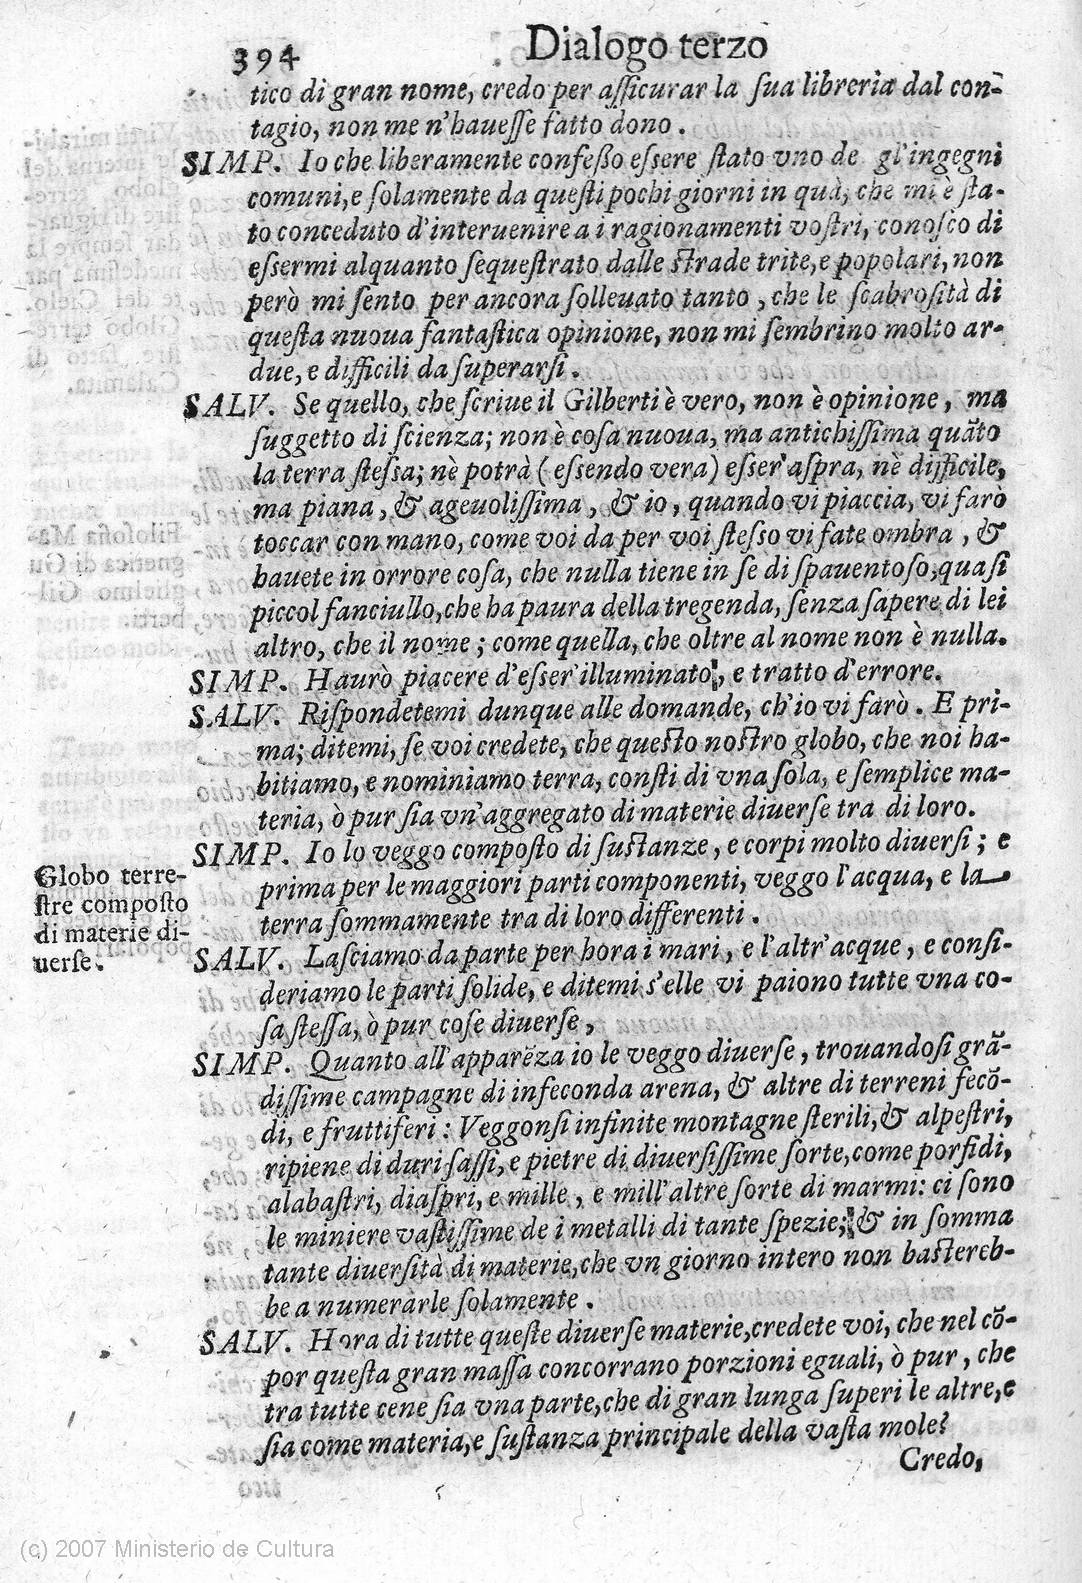 394
Dialogo terzo
tico di gran nome, credo per aſſicurar la ſua libreria dal con-
tagio, non me n'haueſſe fatto dono.
SIMP. Io che liberamente confeßo eſsere ſtato vno de gl'ingegni
comuni, e ſolamente da queſti pochi giorni in quà, che mi è ſta-
to conceduto d'interuenire a i ragionamenti voſtri, conoſco di
eſsermi alquanto ſequeſtrato dalle ſtrade trite, e popolari, non
però mi ſento per ancora ſolleuato tanto, che le ſcabroſità di
queſta nuoua fantaſtica opinione, non mi ſembrino molto ar-
due, e difficili da ſuperarſi.
SALV. Se quello, che ſcriue il Gilberti è vero, non è opinione, ma
ſuggetto di ſcienza; non è coſa nuoua, ma antichiſſima quãto
la terra ſteſsa; nè potrà (eſsendo vera) eſser'aſpra, nè difficile,
ma piana, & ageuoliſſima, & io, quando vi piaccia, vi farò
toccar con mano, come voi da per voi ſteſso vi fate ombra, &
hauete in orrore coſa, che nulla tiene in ſe di ſpauentoſo, quaſi
piccol fanciullo, che ha paura della tregenda, ſenza ſapere di lei
altro, che il nome; come quella, che oltre al nome non è nulla.
SIMP. Haurò piacere d'eſser'illuminato, e tratto d'errore.
SALV. Riſpondetemi dunque alle domande, ch'io vi farò. E pri-
ma; ditemi, ſe voi credete, che queſto noſtro globo, che noi ha-
bitiamo, e nominiamo terra, conſti di vna ſola, e ſemplice ma-
teria, ò pur ſia vn'aggregato di materie diuerſe tra di loro.
SIMP. Io lo veggo compoſto di ſuſtanze, e corpi molto diuerſi; e
prima per le maggiori parti componenti, veggo l'acqua, e la
terra ſommamente tra di loro differenti.
Globo terre-
ſtre compoſto
di materie di-
uerſe.
SALV. Laſciamo da parte per hora i mari, e l'altr'acque, e conſi-
deriamo le parti ſolide, e ditemi s'elle vi paiono tutte vna co-
ſa ſteſſa, ò pur coſe diuerſe,
SIMP. Quanto all'apparẽza io le veggo diuerſe, trouandoſi grã-
diſſime campagne di infeconda arena, & altre di terreni fecõ-
di, e fruttiferi: Veggonſi infinite montagne ſterili, & alpeſtri,
ripiene di duri ſaſſi, e pietre di diuerſiſſime ſorte, come porfidi,
alabaſtri, diaſpri, e mille, e mill'altre ſorte di marmi: ci ſono
le miniere vaſtiſſime de i metalli di tante ſpezie; & in ſomma
tante diuerſità di materie, che vn giorno intero non baſtereb-
be a numerarle ſolamente.
SALV. Hora di tutte queſte diuerſe materie, credete voi, che nel cõ-
por queſta gran maſſa concorrano porzioni eguali, ò pur, che
tra tutte cene ſia vna parte, che di gran lunga ſuperi le altre, e
ſia come materia, e ſuſtanza principale della vaſta mole?
Credo,
(c) 2007 Ministerio de Cultura